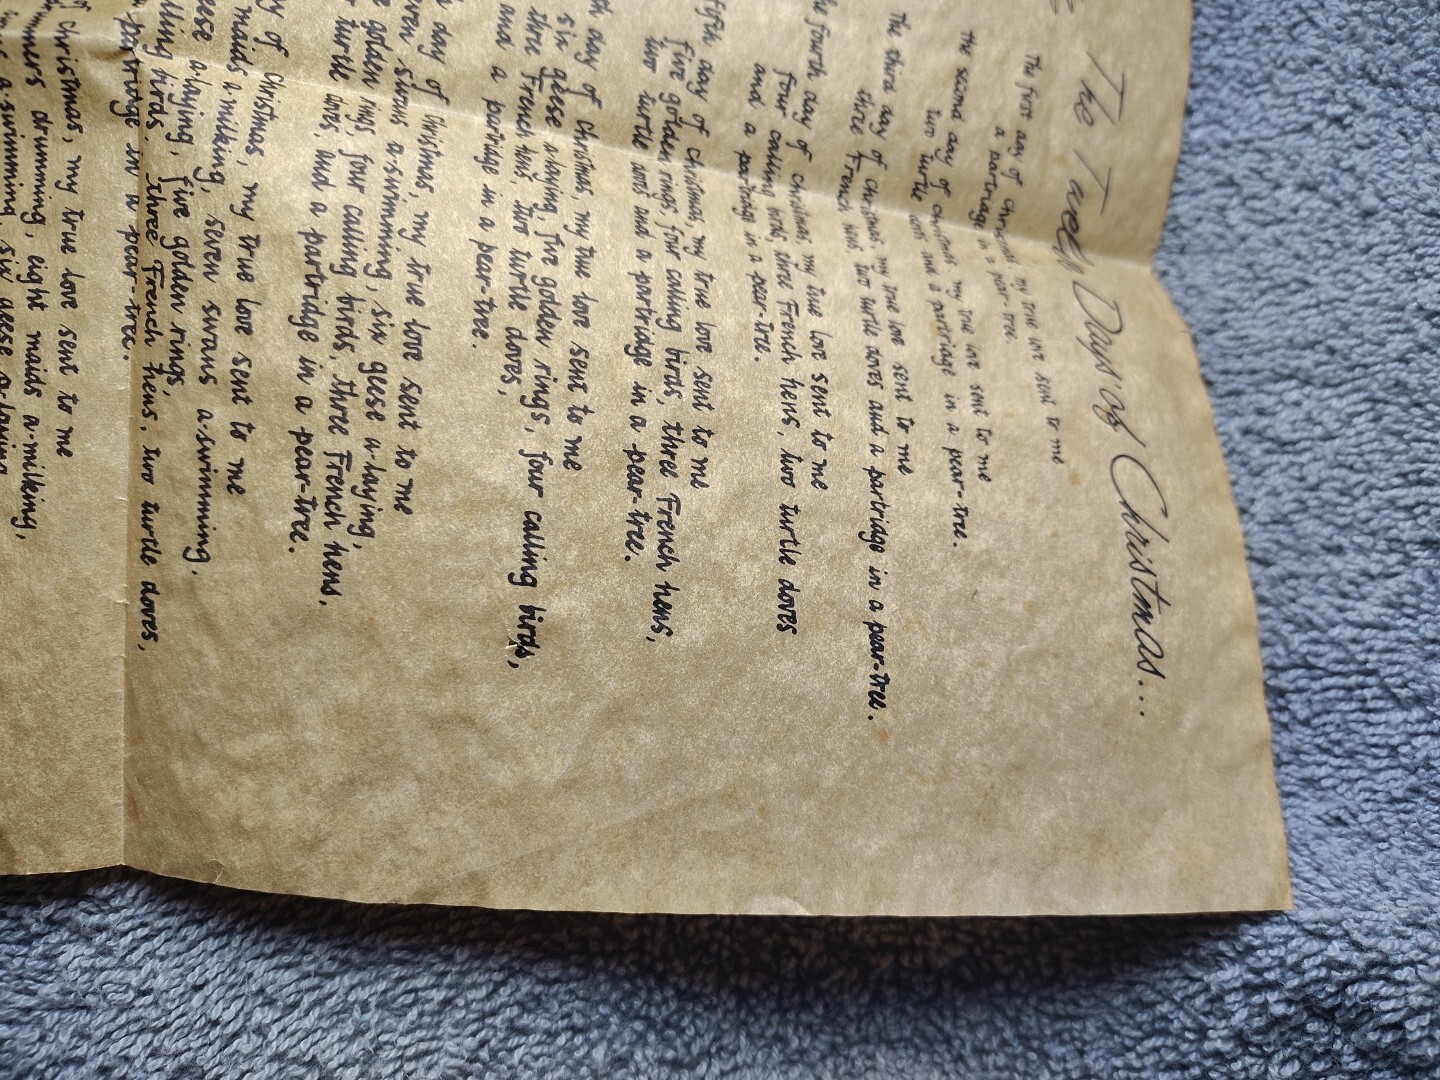 The Twelve Days of Christmas...
The first day of Christmas my true love sent to me
a partridge in a pear-tree.
The second day of Christmas my true love sent to me
two turtle doves and a partridge in a pear-tree.
The third day of Christmas my true love sent to me
three French hens, two turtle doves and a partridge in a pear-tree.
the fourth day of christmas, my true love sent to me
four calling birds, three French hens, two turtle doves
and a partridge in a pear-tree.
day of christmas, my true love sent to me
five golden rings, four calling birds, three French hens,
two turtle doves and a partridge in a pear-tree.
day of christmas, my true love sent to me
six geese a-laying, five golden rings, four calling birds,
three French hens, two turtle doves,
and a partridge in a pear-tree.
day of Christmas, my true love sent to me
swans a-swimming, six geese a-laying,
golden rings four calling birds, three French hens,
turtle doves, and a partridge in a pear-tree.
of christmas, my true love sent to me
maids a-milking, seven swans a-swimming,
a-laying, five golden rings,
birds, three French hens, two turtle doves,
in a pear-tree.
christmas, my true love sent to me
drumming, eight maids a-milking,
a-swimming, six geese a-laying